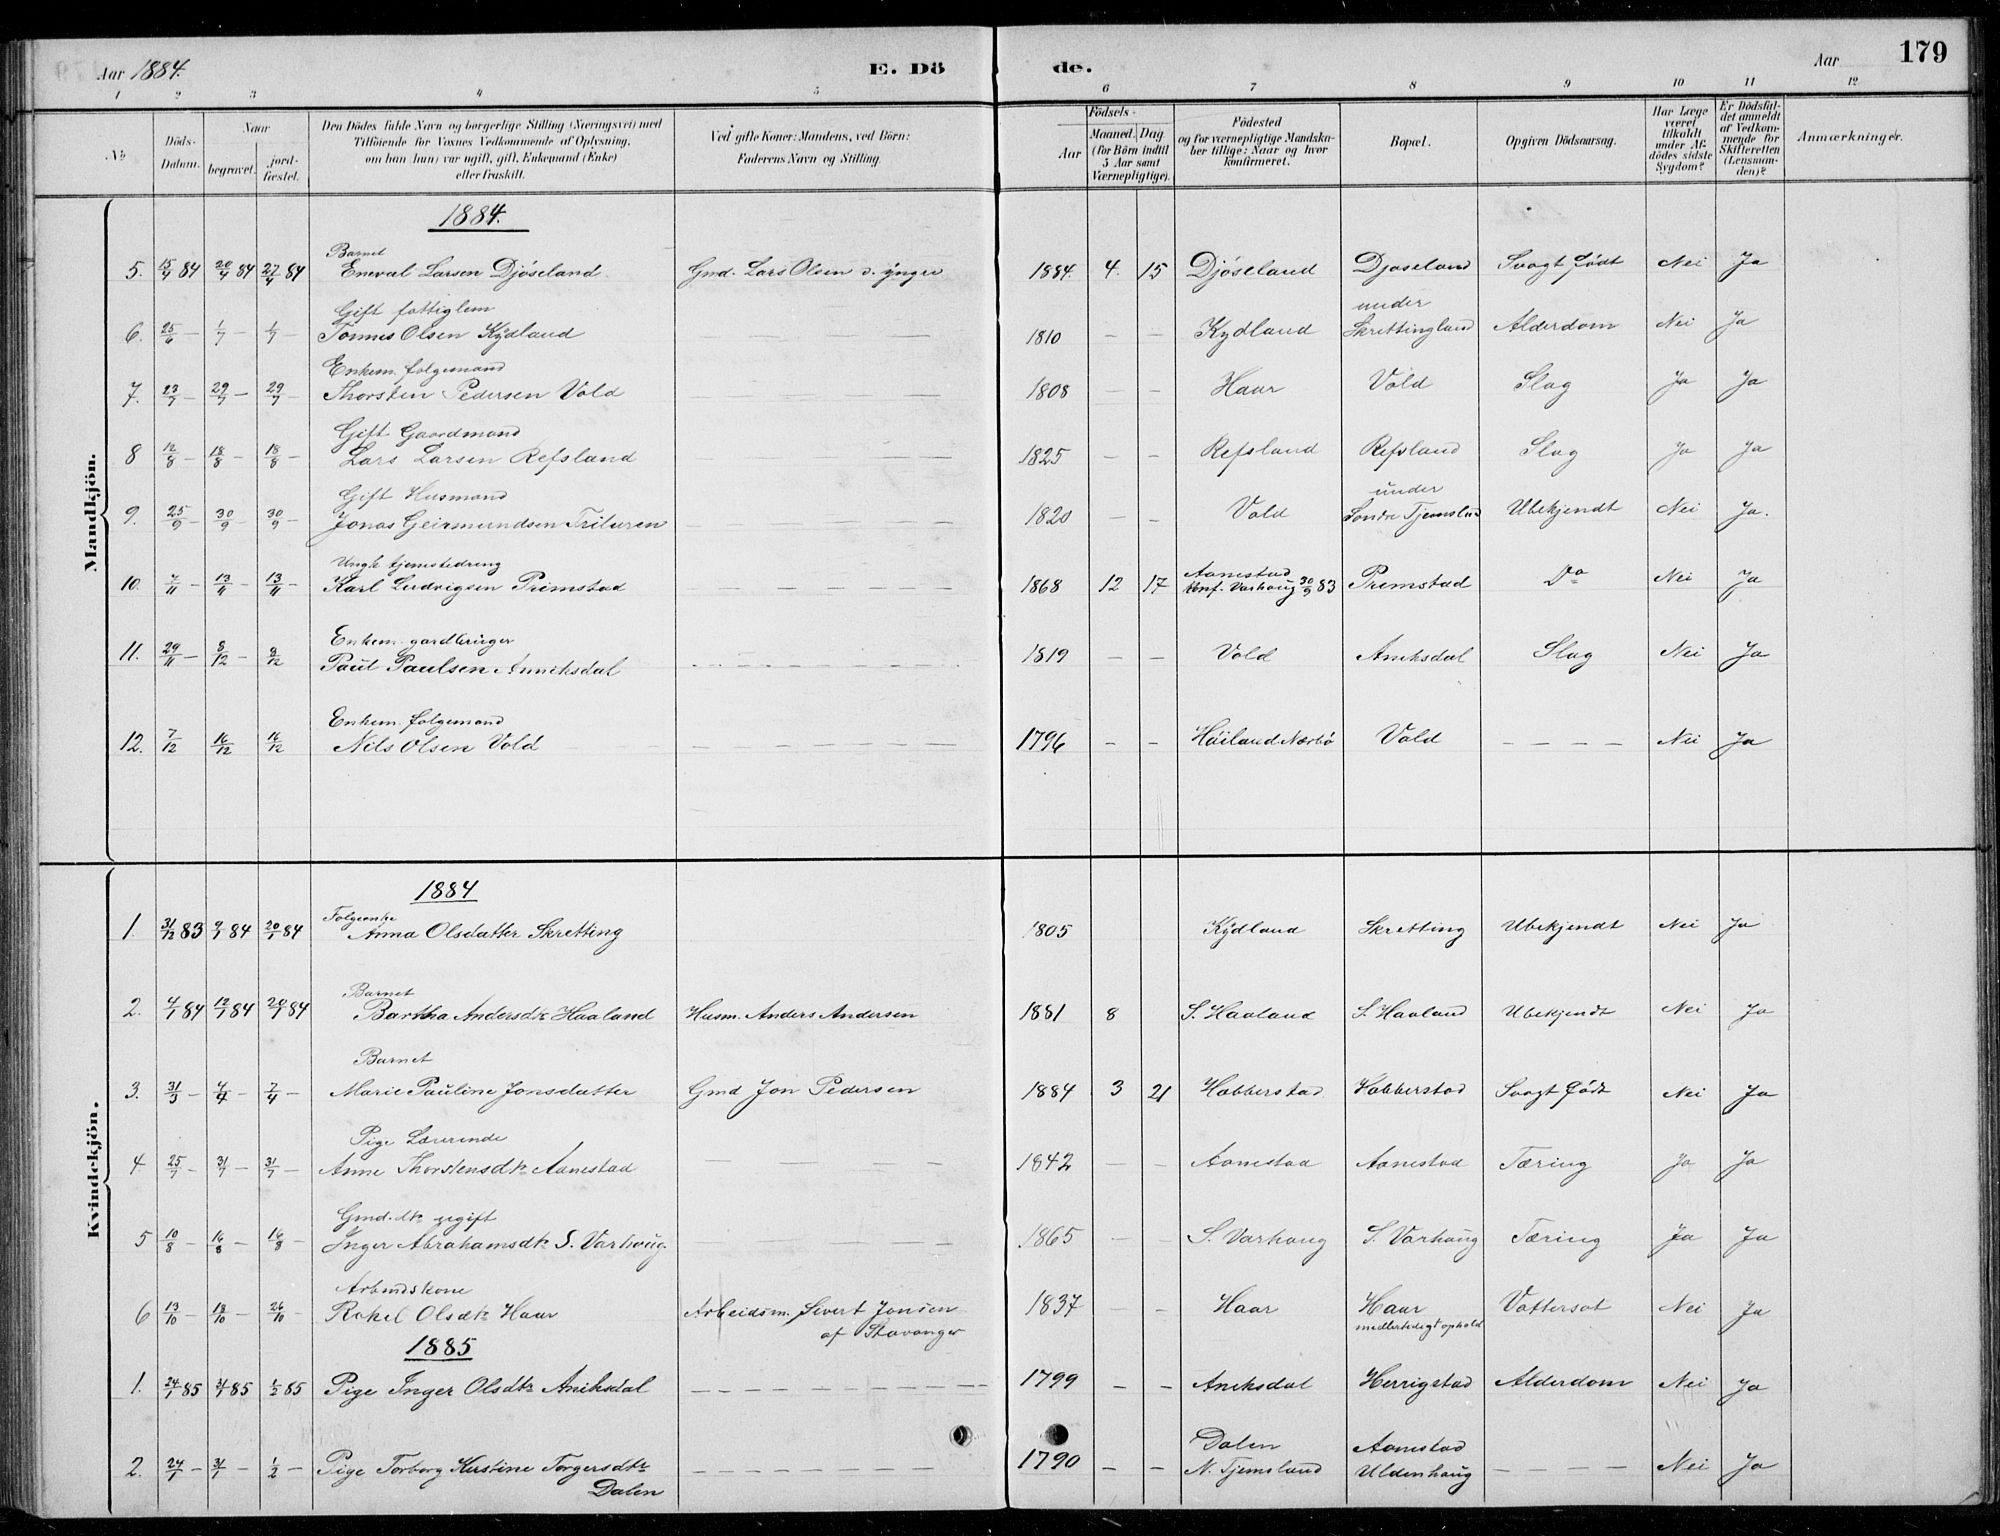 Aar 1884. E. Dö de. Aar 179
1 2 3 4 5 6 7 8 9 10 11 12
No Döds-Datum. Naar begravet. jord-fæstet. Den Dödes fulde Navn og borgerlige Stilling (Næringsvei) med Tilföiende for Voxnes Vedkommende af Oplysning, om han (hun) var ugift, gift, Enkemand (Enke) eller fraskilt. Ved gifte Koner: Mandens, ved Börn: Faderens Navn og Stilling. Födsels- Aar Maaned. Dag. (for Börn indtil 5 Aar samt Værnepligtige). Födested og for værnepligtige Mandskaber tillige: Naar og hvor konfirmeret. Bopæl. Opgiven Dödsaarsag. Har Læge været tilkaldt under Afdödes sidste Sygdom? Er Dödsfaldet anmeldt af Vedkommende for Skifteretten (Lensmanden)? Anmærkninger.
Mandkjön.
1884.
Barnet
5. 15/4 84 20/4 84 27/4 84 Eneval Larsen Djöseland Gmd. Lars Olsen d. yngre 1884. 4. 15 Djöseland Djöseland Svagt födt Nei Ja
Gift fattiglem under
6. 25/6 – 1/7 – 1/7 – Tonnes Olsen Kydland 1810 – – Kydland Skrettingland Alderdom Nei Ja
Enkem. folgemand
7. 23/7 – 29/7 – 29/7 – Thorsten Pedersen Vold 1808 – – Haar Vold Slag Ja Ja
Gift Gaardmand
8 12/8 – 18/8 – 18/8 – Lars Larsen Refsland 1825 – – Refsland Refsland Slag Ja Ja
Gift Husmand under
9. 25/9 – 30/9 – 30/9 – Jonas Geirmundsen 1820 – – Vold Söndre Ubekjendt Nei Ja.
Ungk. tjenestedreng Aanestad
10. 7/11 – 13/11 – 13/11 – Karl Ludvigsen Primstad 1868 12 17 Konf. Varhoug 30/9 83 Premstad Do Nei Ja
Enkem. gardbruger
11. 29/11 – 8/12 – 8/12 Paul Paulsen Anniksdal 1819 – – Vold Aniksdal Slag Nei Ja
Enkem. folgemand
12. 7/12 16/12 16/12 Nils Olsen Vold 1796 – – Häiland Nærbö Vold – – – – Nei Ja
Kvindekjön.
1884
Folgeenke
1. 31/12 83 9/1 84 20/1 84 Anna Olsdatter Skretting 1805 Kydland Skretting Ubekjendt Nei Ja
Barnet
2. 4/1 84 12/1 84 20/1 84 Bartha Andersdtr Haaland Husm. Anders Andersen 1881 8 S. Haaland S. Haaland Ubekjendt Nei Ja
Barnet
3. 31/3 – 4/4 – 7/4 – Marie Pauline Jonsdatter Gmd Jon Pedersen 1884 3 21 Habberstad Habberstad Svagt födt Nei Ja
Pige Lærerinde
4 25/7 – 31/7 – 31/7 – Anne Thorstensdtr Aanestad 1842 – – Aanestad Aanestad Tæring Ja Ja
Gmd. dtr ugift
5 10/8 – 16/8 – 16/8 – Inger Abrahamsdtr S. Varhoug. 1865 – – S. Varhoug S. Varhoug Tæring Ja Ja
Arbeidskone
6 13/10 – 18/10 – 26/10 – Rakel Olsdtr Haar Arbeidsm. Sivert Jonsen af Stavanger 1837 – – Haar Haar midlertidigt ophold Vattersot Nei Ja
1885
1. 24/1 85 31/1 85 1/2 85 Pige Inger Olsdtr Aniksdal 1799 – – Aniksdal Herrigstad Alderdom Nei Ja
2. 24/1 – 31/1 – 1/2 – Pige Torborg Kirstine Torgersdtr Dalen 1790 – – Dalen N. Tjemsland Aanestad Uldenhaug – – – – Nei Ja